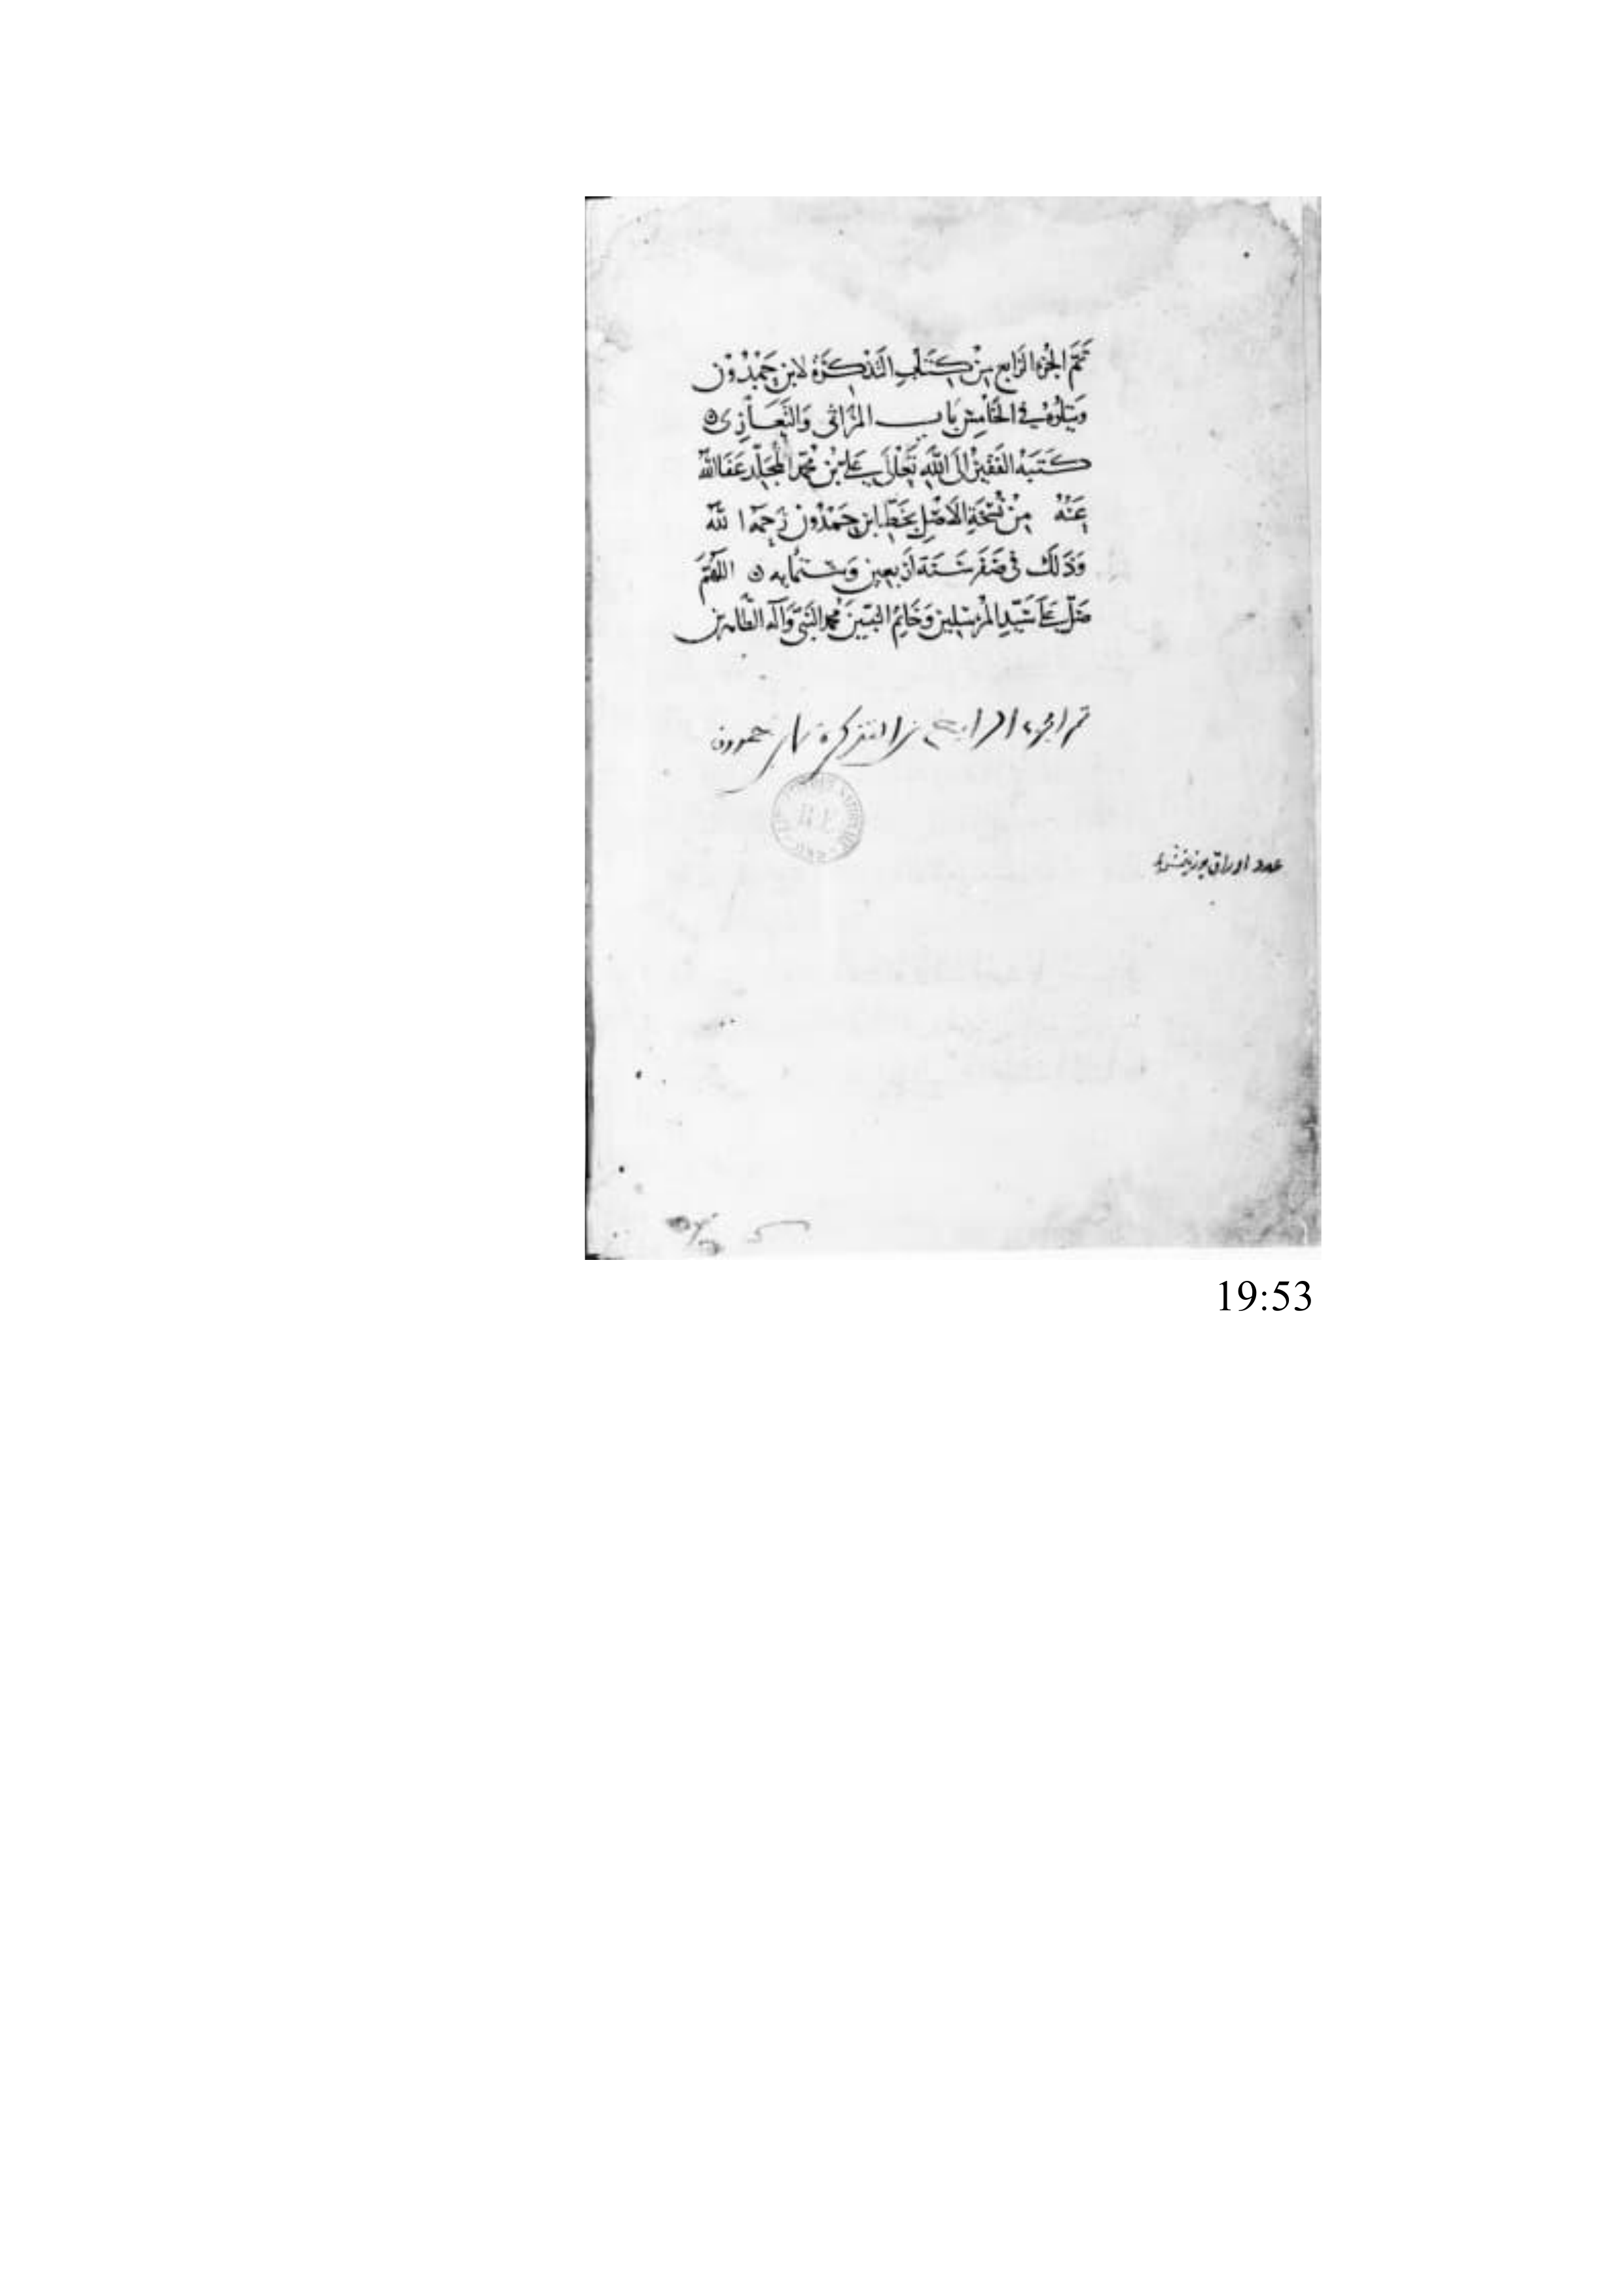 تَمَّ الجُزْء الرَّابع مِنْ كِتَابِ التَّذْكِرَةِ لابنِ حَمْدُوْن
وَيتلوُهُ في الخَامِسِ بَاب المرَاثي وَالتَّعَازِى ه
كَتَبَهُ الفَقيرُ إلَى اللَّهِ تَعَالَى عَلي بْنُ مُحَمَّد المُجَلِّد عَفَا اللَّهُ
عَنْهُ مِنْ نُسْخَةِ الأَصْلِ بخَطِّ ابن حَمْدُون رَحِمَهُ اللَّهُ
وَذَلكَ في صَفَر سَنَة أرْبعين وَستمايه ه اللَّهُمَّ
صَلِّ عَلَى سَيِّدِ المرْسَلين وَخَاتم النبيّينَ مُحمد النَّبيّ وَآله الطَّاهرين
تم الجزء الرابع من التذكرة لابن حمدون
عدد اوراق
19:53